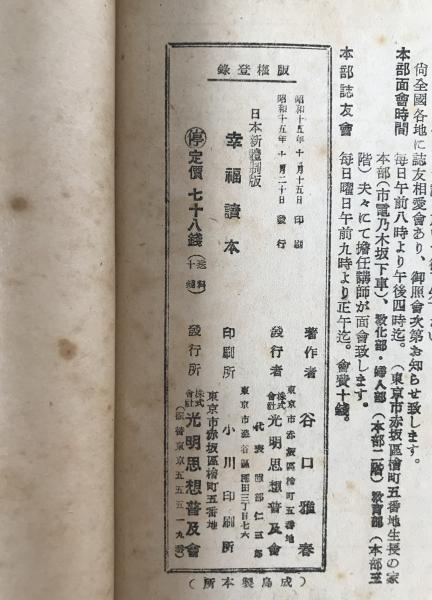 尙全國各地に誌友相愛會あり、御照會次第お知らせ致します。
本部面會時間 每日午前八時より午後四時迄。（東京市赤坂區檜町五番地生長の家
本部（市電乃木坂下車）、敎化部・婦人部（本部二階）敎育部（本部三
階）夫々にて擔任講師が面會致します。
本部誌友會 每日曜日午前九時より正午迄。會費十錢。
版權登錄
昭和十五年十月十五日 印刷
昭和十五年十月二十日 發行
日本新體制版
幸福讀本
停 定價 七十八錢（送料十錢）
著作者 谷口雅春
東京市赤坂區檜町五番地
發行者 株式會社 光明思想普及會
代表
印刷所 小川印刷所
東京市赤坂區檜町五番地
發行所 株式會社 光明思想普及會
（振替東京五五五一九番）
（成島製本所）